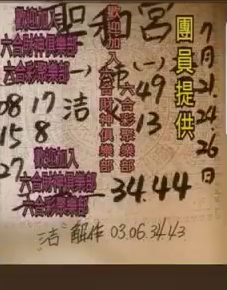 歡迎加入
六合財神俱樂部
六合彩聚樂部
聖和宮
歡迎加入
六合彩聚樂部
六合財神俱樂部
團員提供
7月21.24.26日
(一)
(一)
49
08 17 洁
13
15 8
27
歡迎加入
六合財神俱樂部
六合彩聚樂部
34.44
洁 解作 03.06.34.43